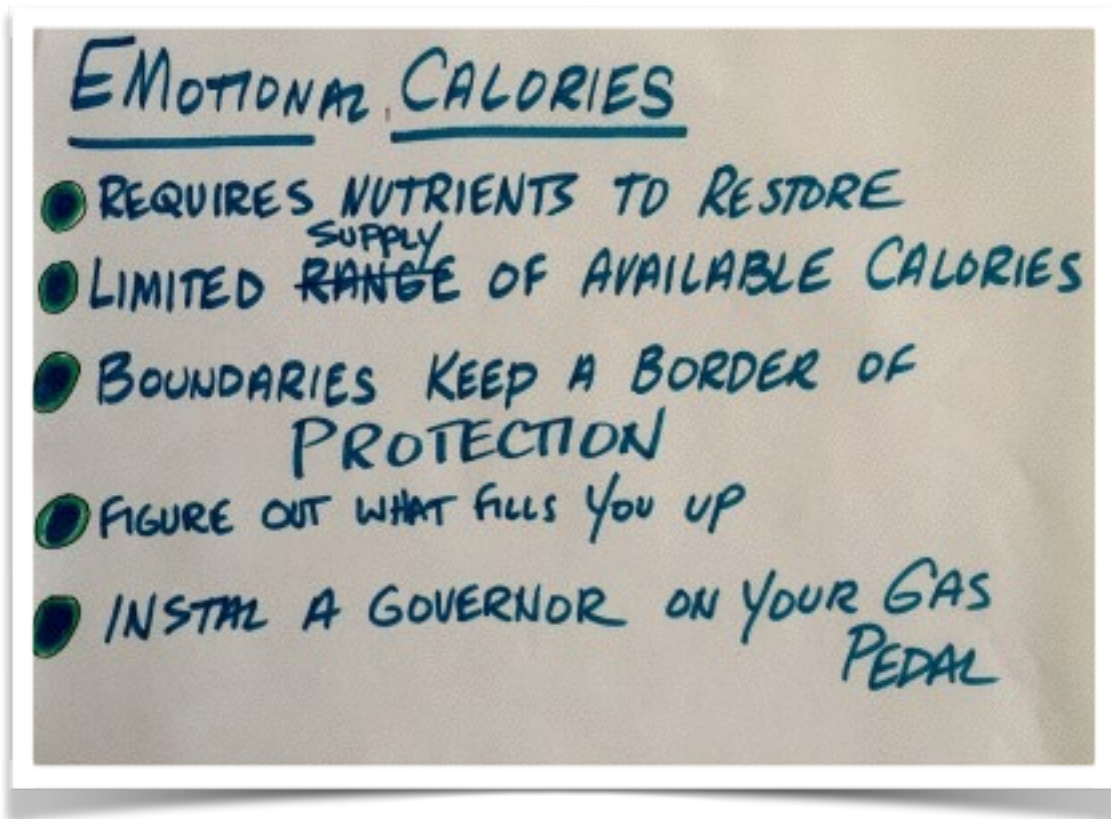 EMOTIONAL CALORIES
REQUIRES NUTRIENTS TO RESTORE
SUPPLY
LIMITED RANGE OF AVAILABLE CALORIES
BOUNDARIES KEEP A BORDER OF
PROTECTION
FIGURE OUT WHAT FILLS YOU UP
INSTAL A GOVERNOR ON YOUR GAS
PEDAL